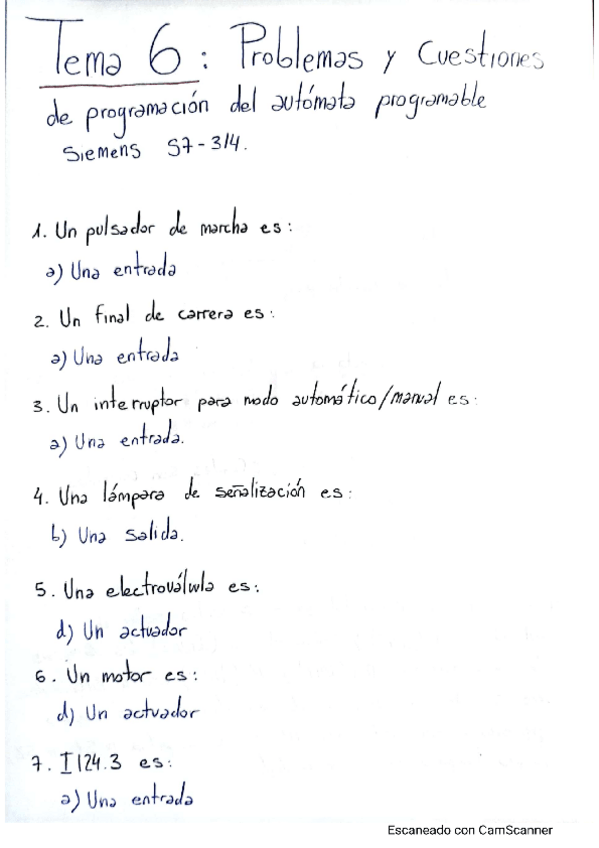 Tema 6: Problemas y Cuestiones
de programación del autómata programable
Siemens S7-314.
1. Un pulsador de marcha es:
a) Una entrada
2. Un final de carrera es:
a) Una entrada
3. Un interruptor para modo automático/manual es:
a) Una entrada.
4. Una lámpara de señalización es:
b) Una salida.
5. Una electroválvula es:
d) Un actuador
6. Un motor es:
d) Un actuador
7. I124.3 es:
a) Una entrada
Escaneado con CamScanner